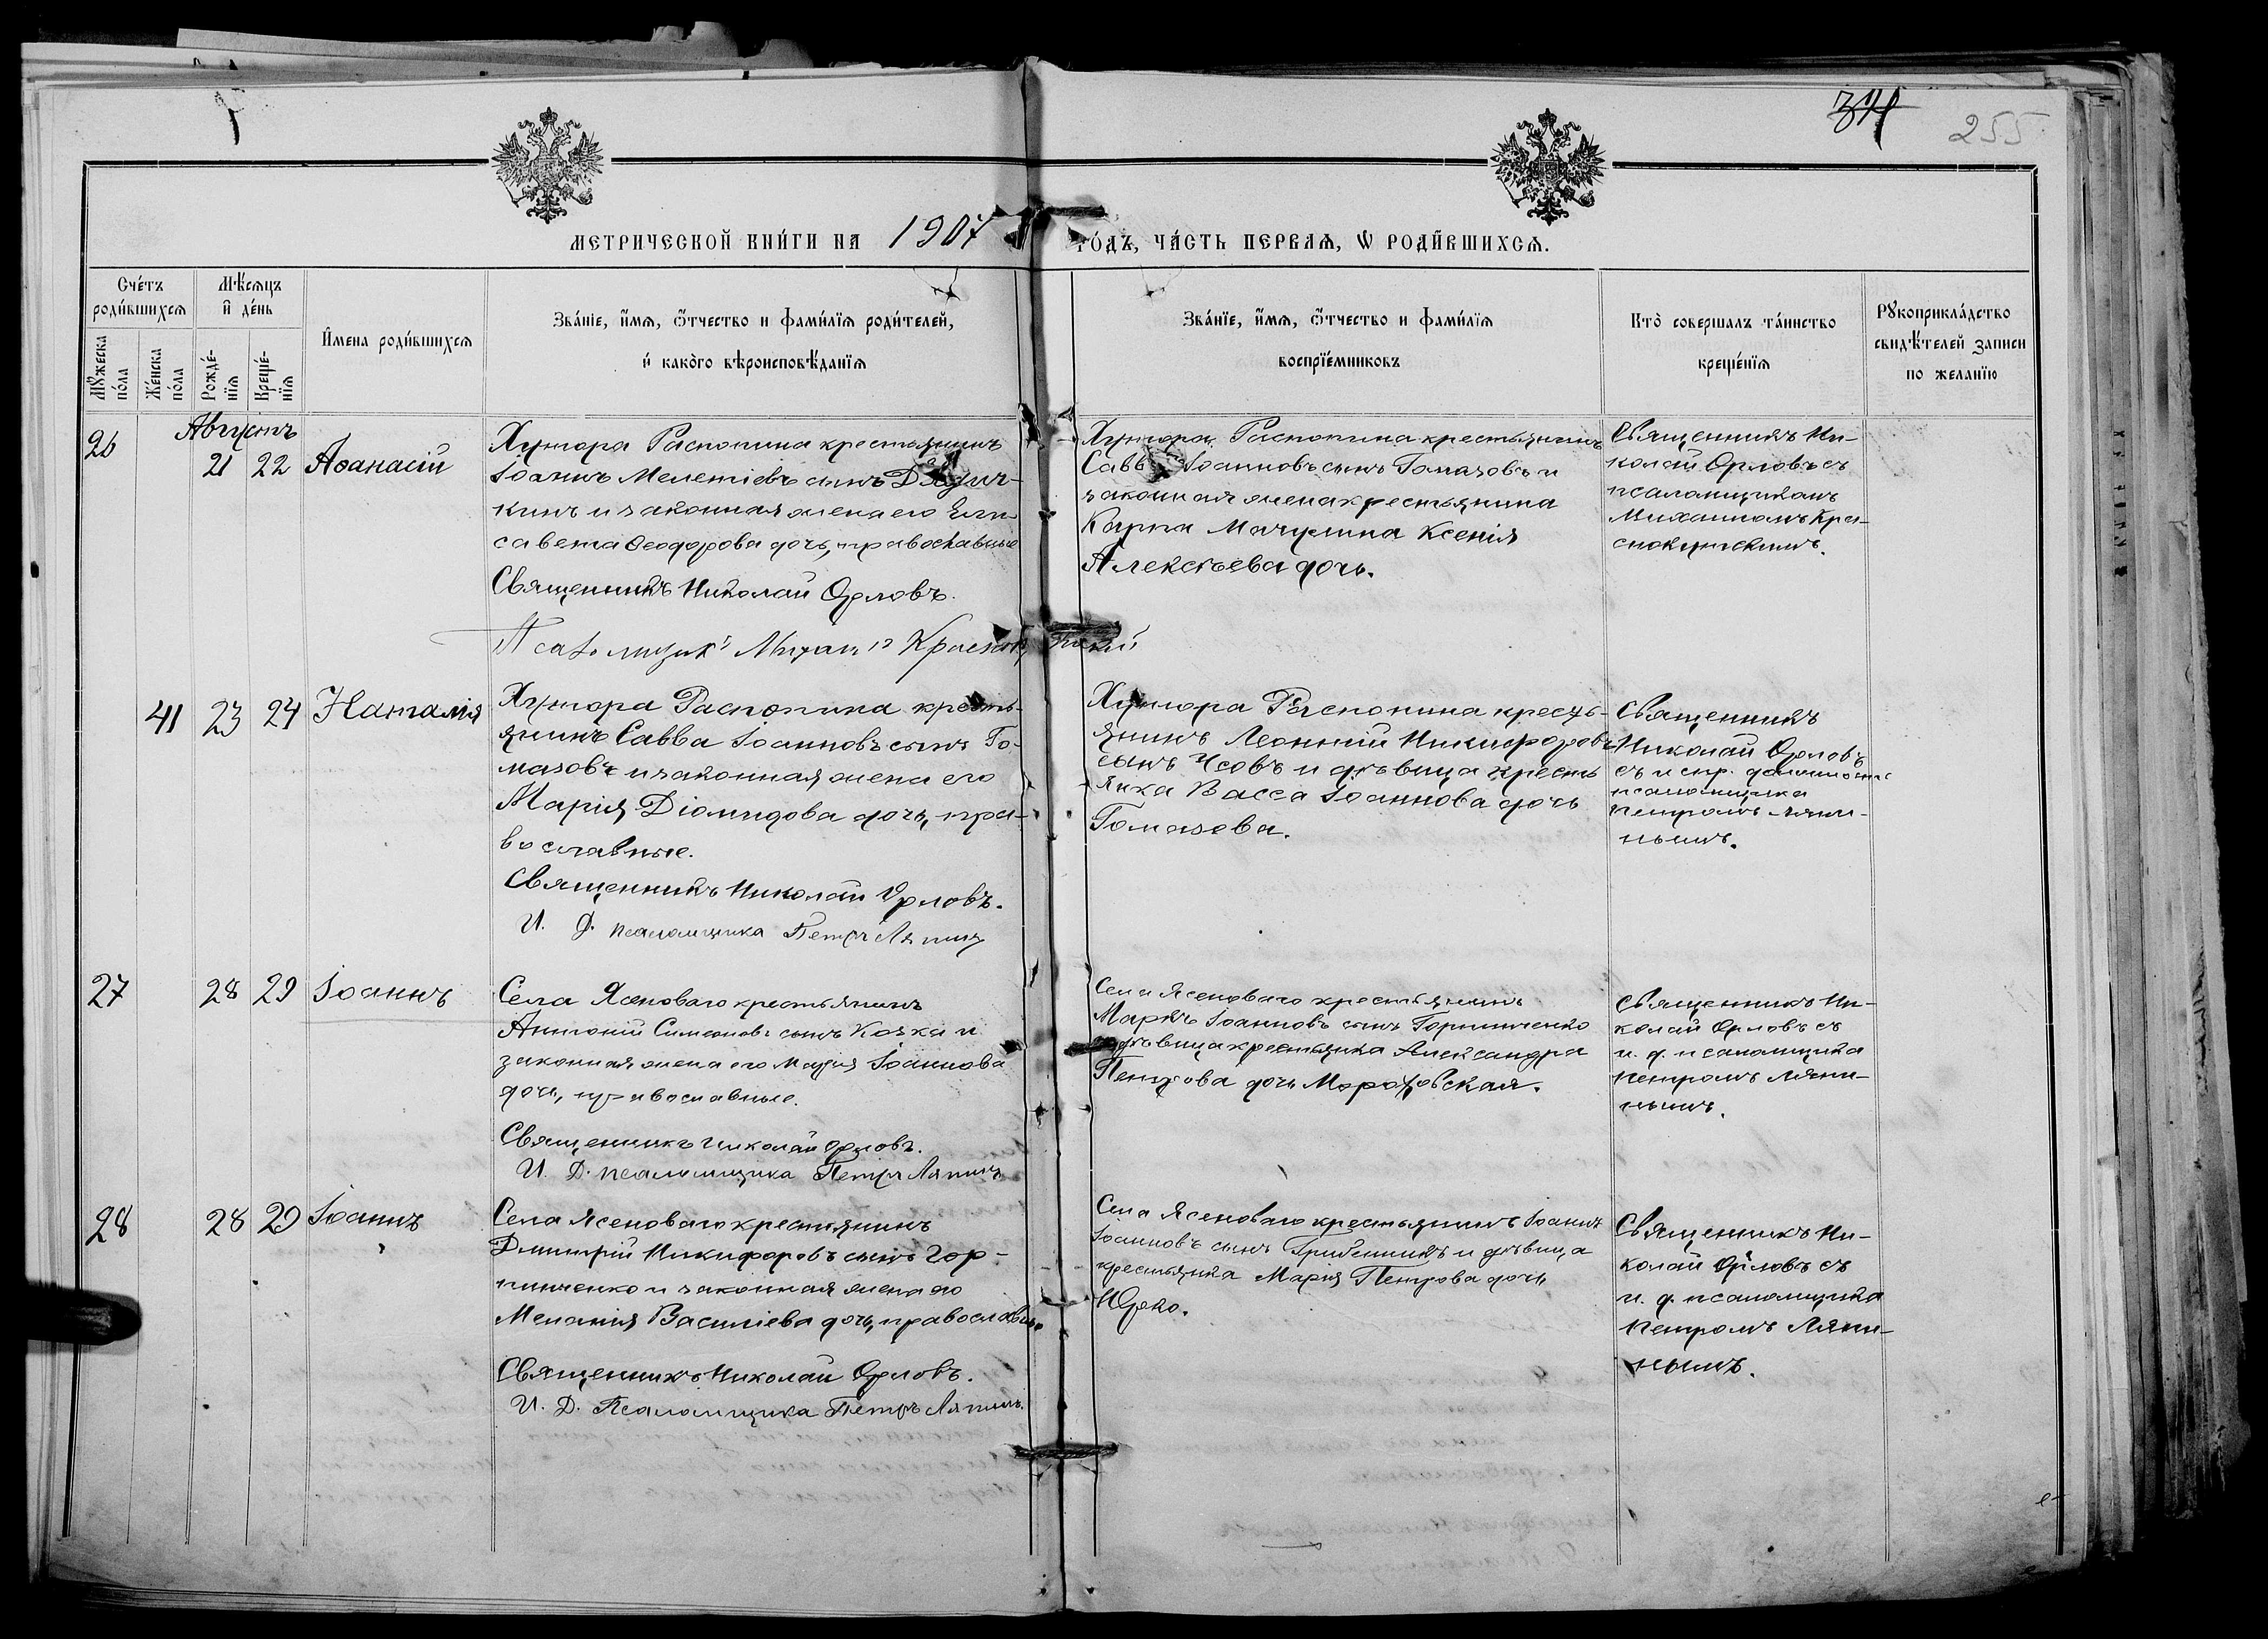 34
255
МЕТРИЧЕСКОЙ КНИ́ГИ НА 1907 ГО́ДЪ, ЧА́СТЬ ПЕРВАЯ, Ѡ РОДИ́ВШИХСЯ.
Сче́тъ роди́вшихся
Мꙋжеска по́ла
Же́нска по́ла
Мѣ́сяцъ и҆ де́нь
Рожде́-нїя
Креще́-нїя
И҆мена роди́вшихся
Зва́нїе, и҆́мя, ѻ҆́тчество и фами́лїя роди́телей,
и҆ како́го вѣроисповѣ́данїя
Зва́нїе, и҆́мя, ѻ҆́тчество и фами́лїя
воспрїе́мниковъ
Кто̀ совершалъ та́инство
креще́нїя
Рꙋкоприкла́дство
свидѣ́телей записи
по желанїю
Августъ
26
21 22 Аѳанасій
Хутора Распопина крестьянинъ
Іоаннъ Мелетіевъ сынъ
кинъ и законная жена его Ели-
савета Ѳеодорова дочь, православные
Священникъ Николай Орловъ.
Псаломщикъ Михаилъ
Хутора Распопина крестьянинъ
Савва Іоанновъ сынъ Гомазовъ и
законная жена крестьянина
Карпа Мачулина Ксенія
Алексѣева дочь.
Священникъ Ни-
колай Орловъ съ
псаломщикомъ
Михаиломъ Кра-
снокутскимъ.
41 23 24 Наталія
Хутора Распопина кресть-
янинъ Савва Іоанновъ сынъ Го-
мазовъ и законная жена его
Марія Діомидова дочь, пра-
вославные.
Священникъ Николай Орловъ.
И. Д. псаломщика Петръ Ляпинъ
Хутора Распопина кресть-
янинъ Леонтій Никифоровъ
сынъ Усовъ и дѣвица кресть
янка Васса Іоаннова дочь
Гомазова.
Священникъ
Николай Орловъ
съ испр. должность
псаломщика
Петромъ Ляпи-
нымъ.
27 28 29 Іоаннъ
Села Ясеноваго крестьянинъ
Антоній Симеоновъ сынъ Козка и
законная жена его Марія Іоаннова
дочь, православные.
Священникъ Николай Орловъ.
И. Д. псаломщика Петръ Ляпинъ
Села Ясеноваго крестьянинъ
Маркъ Іоанновъ сынъ Горпинченко
дѣвица крестьянка Александра
Петрова дочь Мороховская.
Священникъ Ни-
колай Орловъ съ
и. д. псаломщика
Петромъ Ляпи-
нымъ.
28 28 29 Іоаннъ
Села Ясеноваго крестьянинъ
Димитрій Никифоровъ сынъ Гор-
пинченко и законная жена его
Меланія Василіева дочь, православные
Священникъ Николай Орловъ.
И. Д. Псаломщика Петръ Ляпинъ.
Села Ясеноваго крестьянинъ Іоаннъ
Іоанновъ сынъ Гребенникъ и дѣвица
крестьянка Марія Петрова дочь
Священникъ Ни-
колай Орловъ съ
и. д. псаломщика
Петромъ Ляпи-
нымъ.